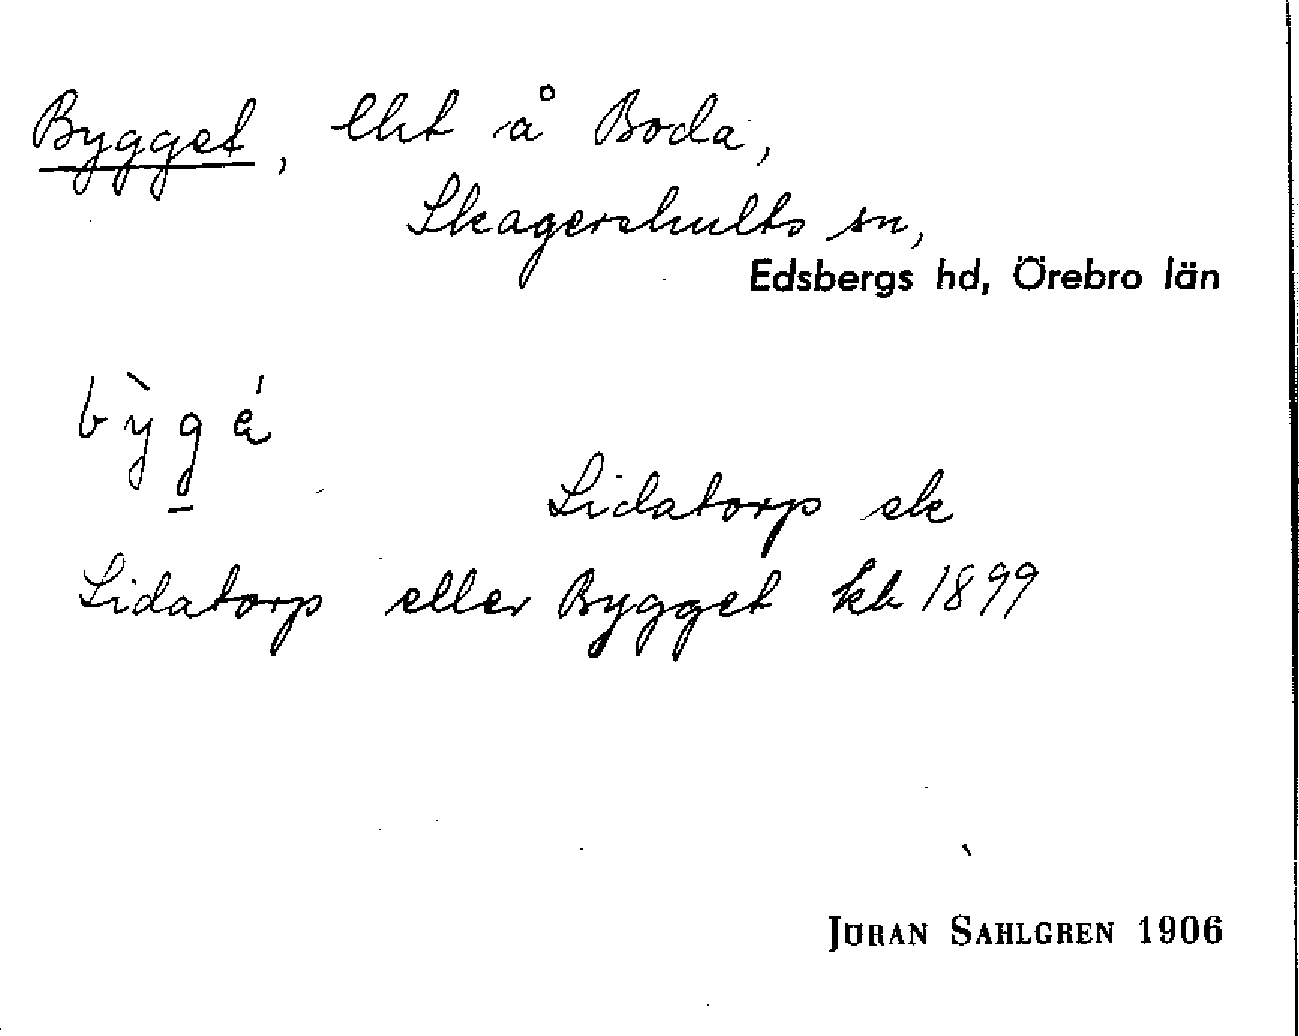 Bygget, lht å Boda,
Skagershults sn,
Edsbergs hd, Örebro län
bỳgá
Lidatorp ek
Lidatorp eller Bygget kb 1899
JÖRAN SAHLGREN 1906